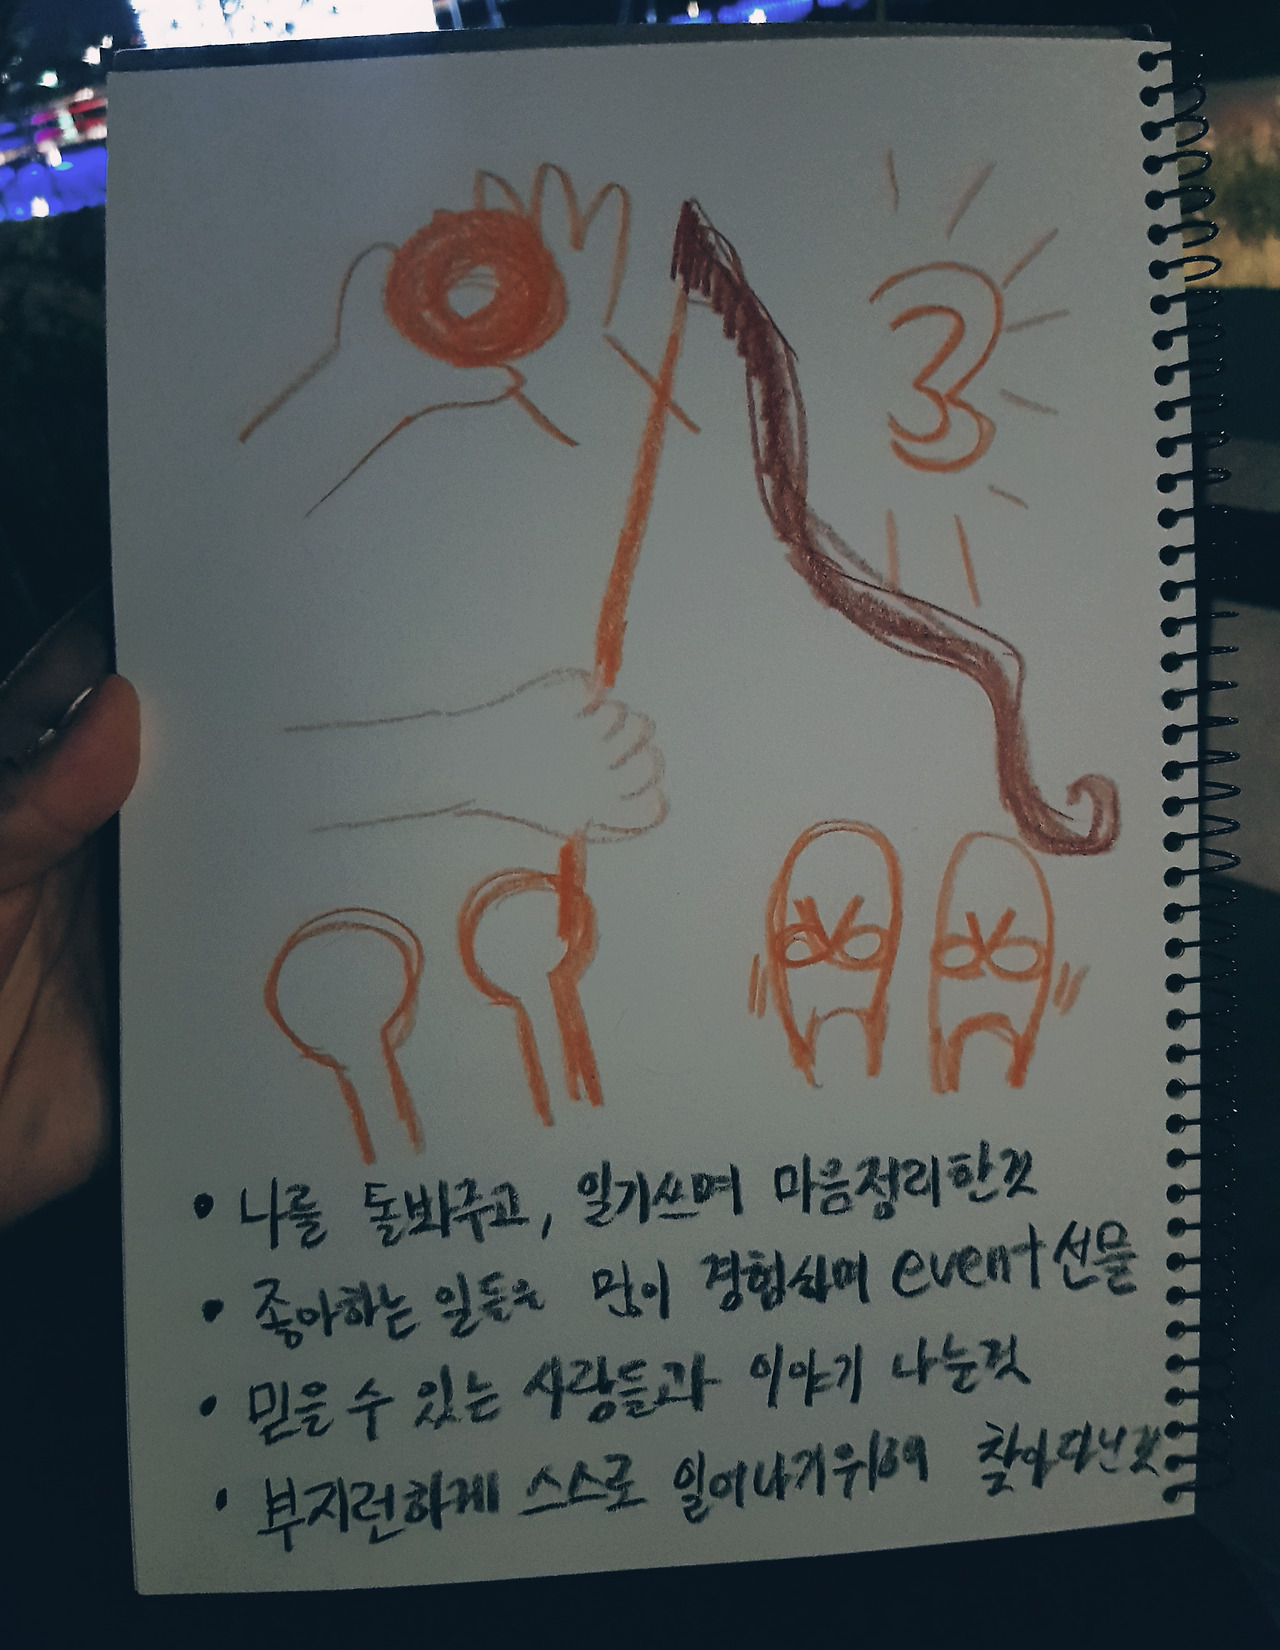 • 나를 돌봐주고, 일기쓰며 마음정리한것
• 좋아하는 일들을 많이 경험하며 event 선물
• 믿을 수 있는 사람들과 이야기 나눈것
• 부지런하게 스스로 일어나기위해 찾아다닌것